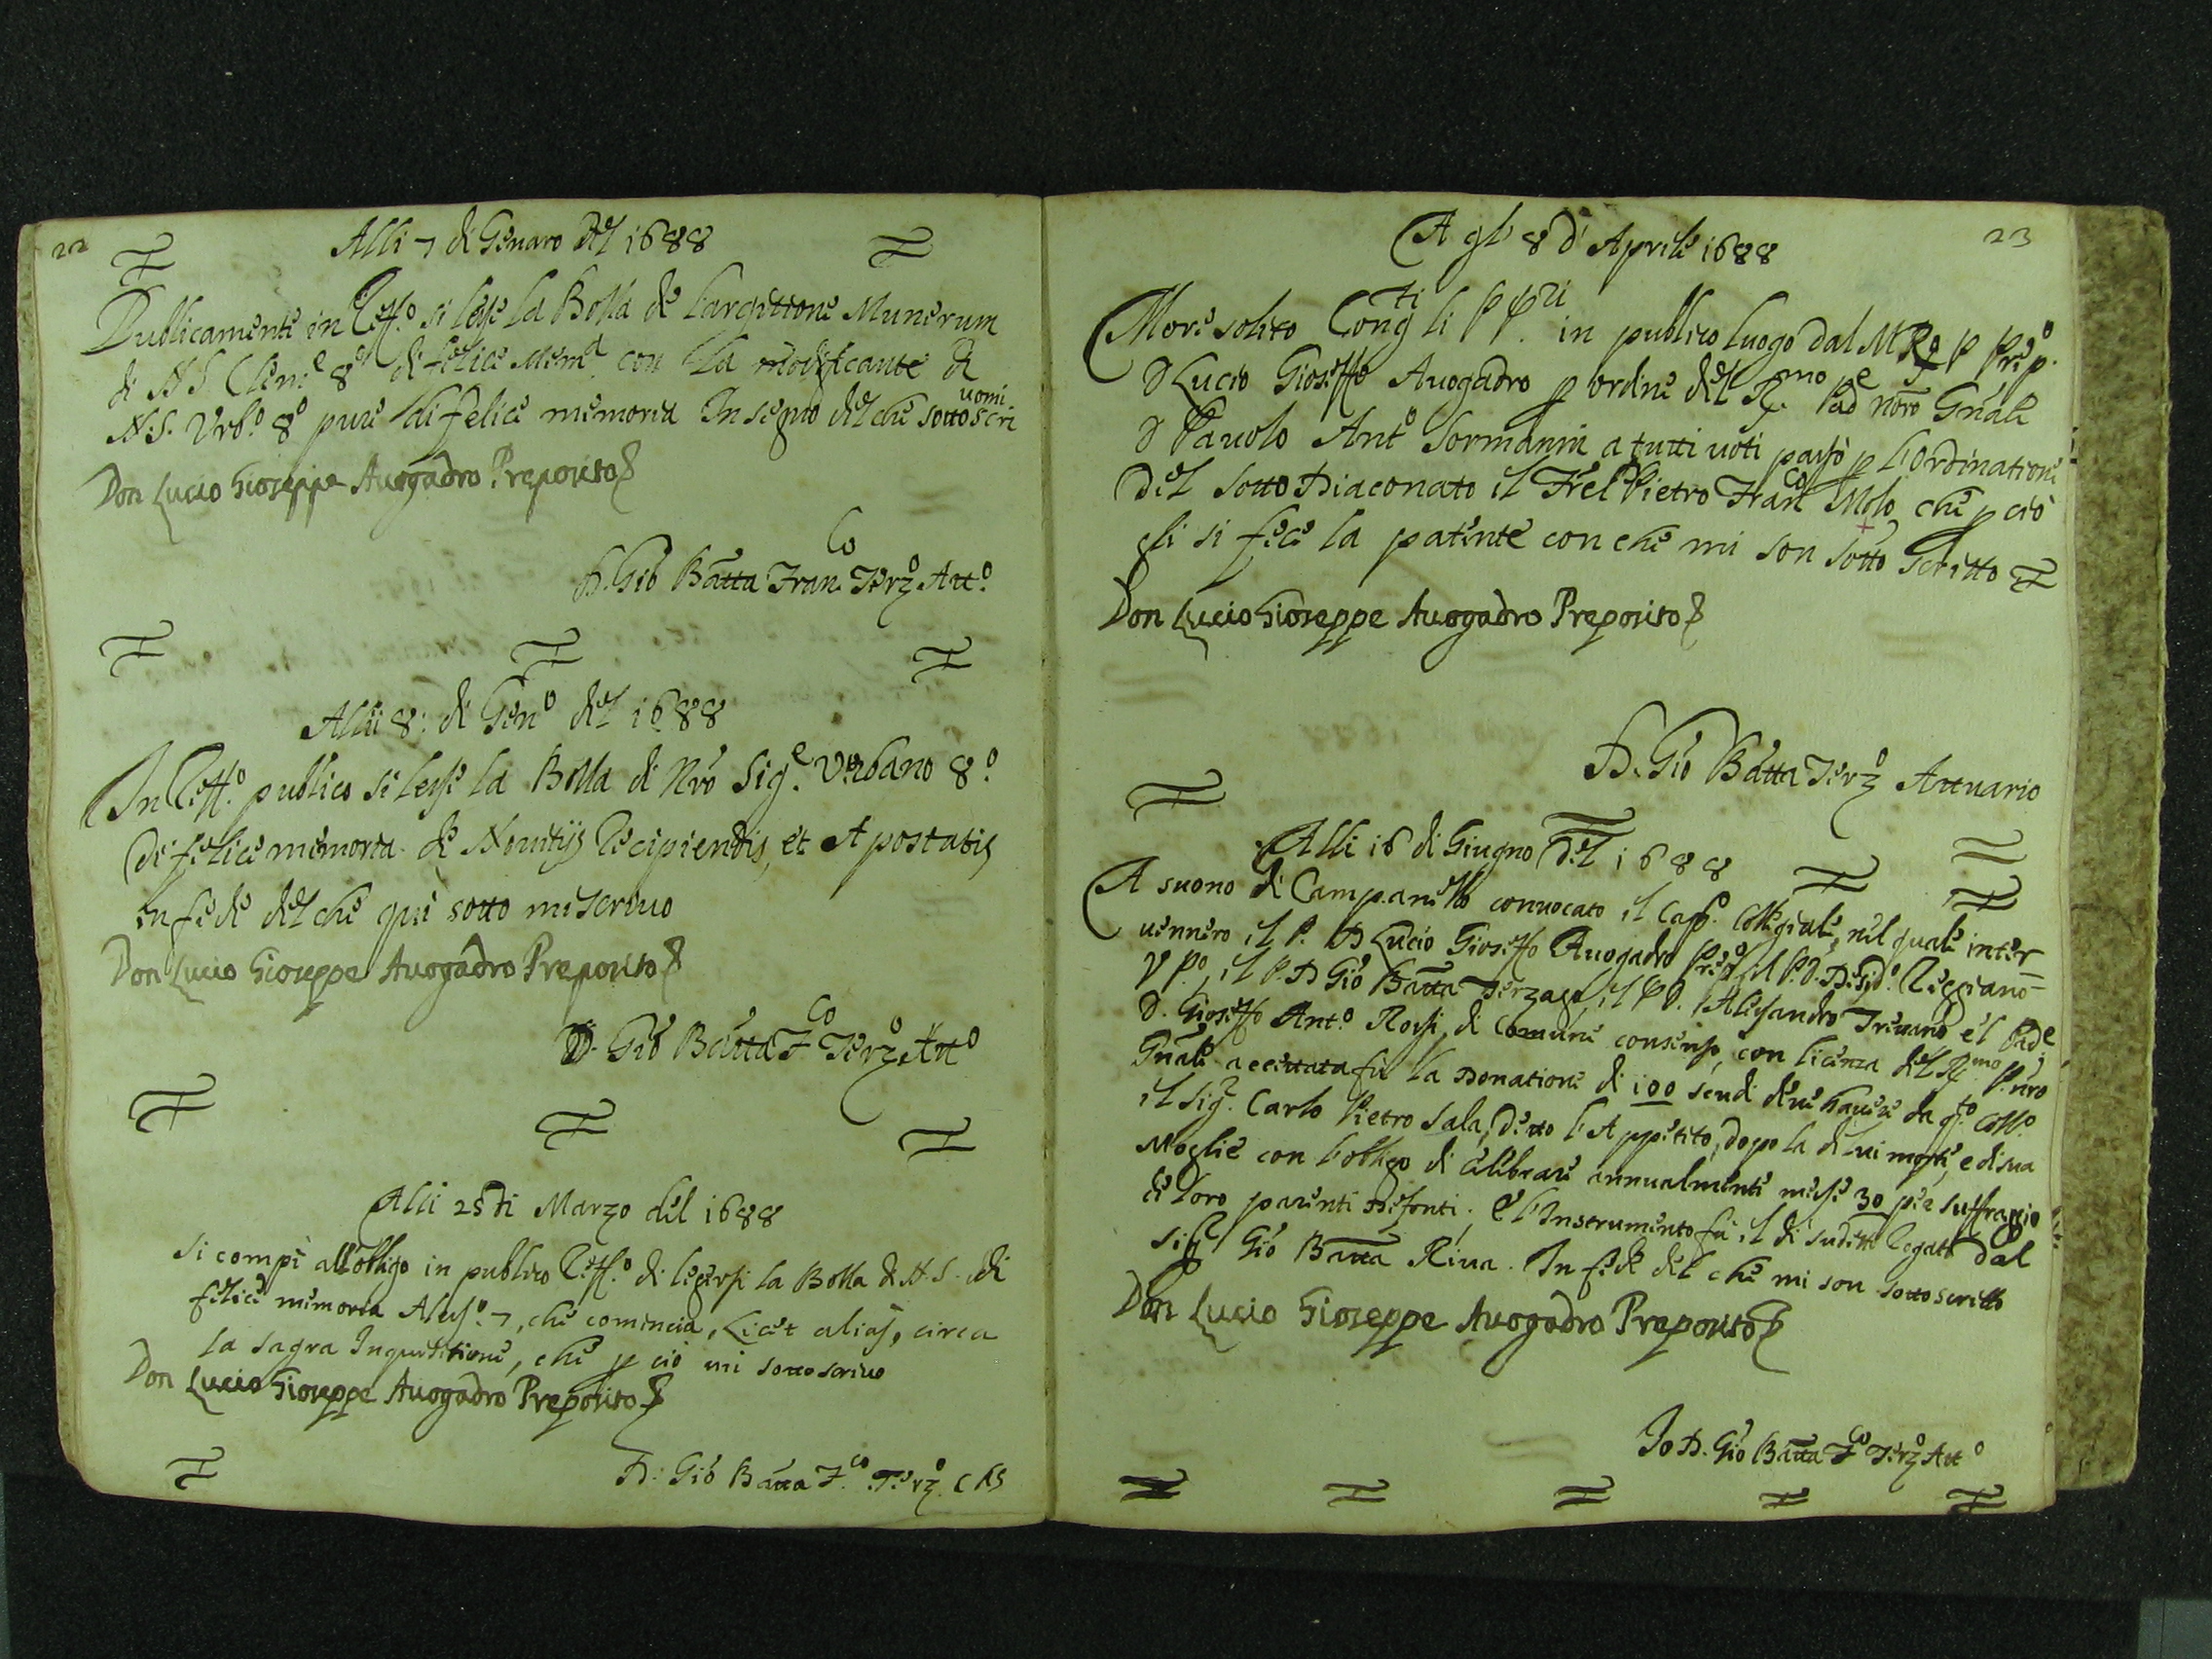 22
Alli 7 di Genaro del 1688
Publicamente in Reff.o si lesse la Bolla de Largitione Munerum
di N S Cleme 8o di felice Mema con la modificante di
N.S. Urb.o 8o pure di felice memoria In segno del che sottoscri
uomi
Don Lucio Gioseppe Auogadro Preposito
D. Gio Batta Fran.co Terzo Att.o
Alli 8: di Geno del 1688
In Reff.o publico si lesse la Bolla di Nro Sig.e Urbano 8.o
di felice memoria de Nouitijs Recipiendis, et Apostatis
in fede del che qui sotto mi scriuo
Don Lucio Gioseppe Auogadro Preposito
D. Gio Batta F.co Terzo Atto
Alli 25 di Marzo del 1688
Si compì all'obligo in publico Reff.o di legersi la Bolla di N.S. di
felice memoria Aless.o 7, che comincia, Licet alias, circa
la sagra Inquisitione, che p ciò mi sottoscriuo
Don Lucio Gioseppe Auogadro Preposito
D: Gio Batta F.co Terzo
23
A gli 8 d'Aprile 1688
More solito Congti li P Pri in publico luogo dal M R P Prep.o
D Lucio Gioseffo Auogadro p ordine del R.mo Pade nõro Gnãle
D Pauolo Anto Sormanni a tutti uoti passò p l'ordinatione
del Sotto Diaconato il Frel Pietro Franco Molo che p ciò
gli si fece la patente con che mi son sotto Scritto
Don Lucio Gioseppe Auogadro Preposito
D. Gio Batta Terzo Attuario
Alli 16 di Giugno del 1688
A suono di Campanello convocato il Capo. Collegiale, nel quale inter
uennero il P. D Lucio Gioseffo Auogadro Preo, il P.D. Desido. Reggiano
V Po, il P. D Gio Batta Terzago, il P D. Alessandro Treuano e'l Pade
D. Gioseffo Ant.o Rossi, di Comune consenso, con licenza del R.mo P. nro
Gnãle accettata fù la Donatione di 100 scudi deue hauere da q.to Coll.o
il Sigr. Carlo Pietro Sala, detto l'Appetito, dopo la di lui morte, e di sua
Moglie con l'obligo di celebrare annualmente messe 30 per suffragio
de loro parenti Defonti; e l'Instrumento fu il dì sudetto Rogato dal
Sigr Gio Batta Riua. In fede del che mi son sottoscritto
Don Lucio Gioseppe Auogadro Preposito
Io D. Gio Batta F.co Terzo Att.o